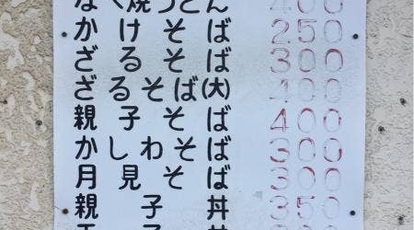 なべ焼うどん 400
かけそば 250
ざるそば 300
ざるそば(大) 400
親子そば 400
かしわそば 300
月見そば 300
親子丼 350